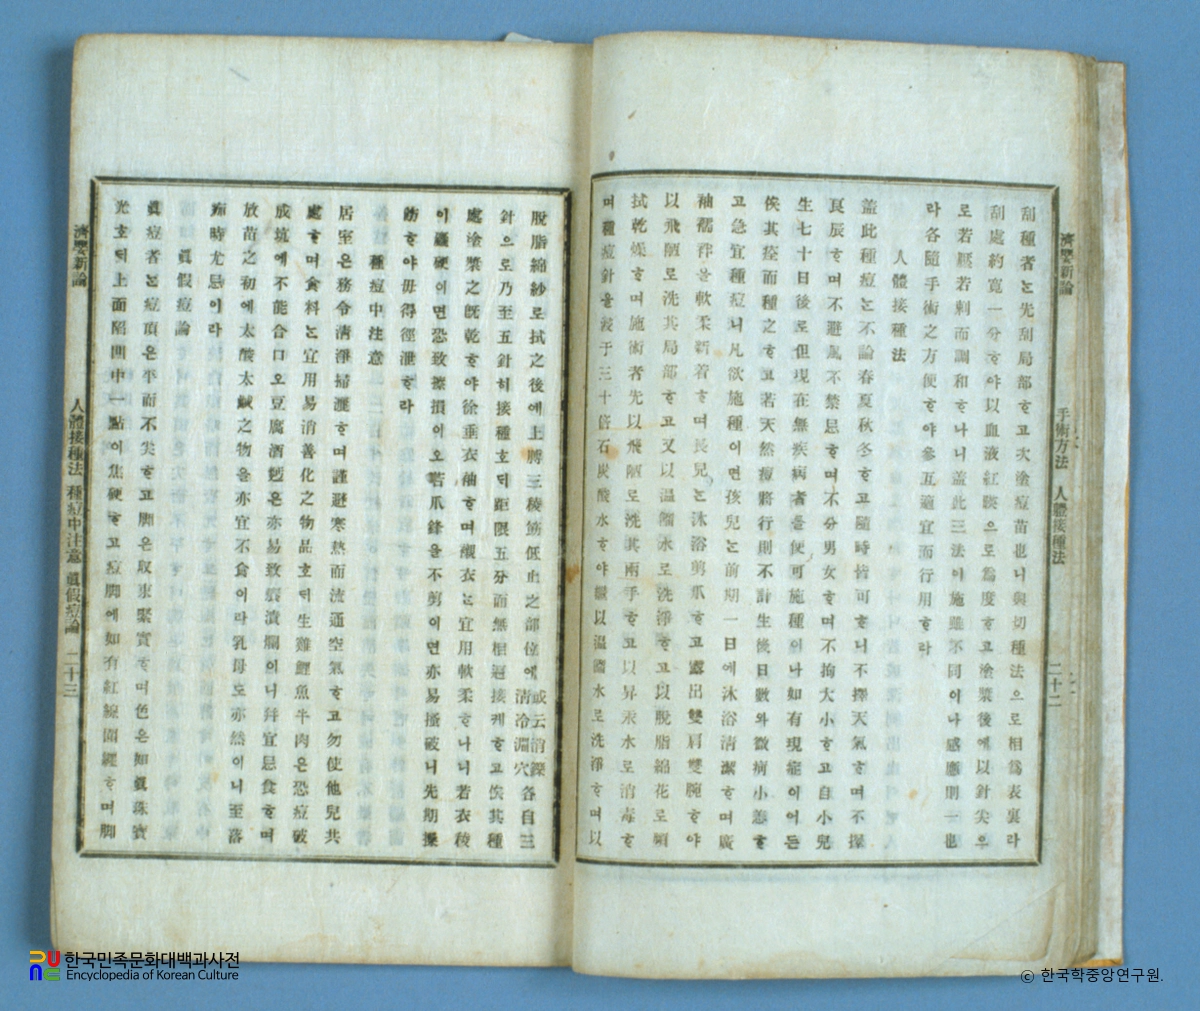 濟嬰新論 手術方法 人體接種法 二十二
刮種者ᄂᆞᆫ先刮局部ᄒᆞ고次塗痘苗也니與切種法으로相爲表裏라
刮處約寬一分ᄒᆞ야以血液紅暎으로爲度ᄒᆞ고塗漿後에以針尖으
로若壓若刺而調和ᄒᆞ나니盖此三法이施雖不同이나感應則一也
라各隨手術之方便ᄒᆞ야參互適宜而行用ᄒᆞ라
人體接種法
盖此種痘ᄂᆞᆫ不論春夏秋冬ᄒᆞ고隨時皆可ᄒᆞ니不擇天氣ᄒᆞ며不擇
良辰ᄒᆞ며不避風不禁忌ᄒᆞ며不分男女ᄒᆞ며不拘大小ᄒᆞ고自小兒
生七十日後로但現在無疾病者를便可施種이나如有現症이어든
俟其痊而種之ᄒᆞ고若天然痘將行則不計生後日數와微病小恙ᄒᆞ
고急宜種痘니凡欲施種이면孩兒ᄂᆞᆫ前期一日에沐浴淸潔ᄒᆞ며廣
袖襦袢을軟柔新着ᄒᆞ며長兒ᄂᆞᆫ沐浴剪爪ᄒᆞ고露出雙肩雙腕ᄒᆞ야
以飛陋로洗其局部ᄒᆞ고又以温醋水로洗淨ᄒᆞ고以脫脂綿花로
拭乾燥ᄒᆞ며施術者先以飛陋로洗其兩手ᄒᆞ고以昇汞水로消毒ᄒᆞ
며種痘針을于三十倍石炭酸水ᄒᆞ야以温水로洗淨ᄒᆞ며以
脫脂綿紗로拭之後에上膊三稜筋低止之部位에或云消鑠淸冷淵穴各自三
針으로乃至五針히接種호ᄃᆡ距限五分而無相逼接케ᄒᆞ고俟其種
處塗漿之旣乾ᄒᆞ야徐垂衣袖ᄒᆞ며襯衣ᄂᆞᆫ宜用軟柔ᄒᆞ나니若衣稜
이硬이면恐致擦損이오若爪鋒을不剪이면亦易搔破니先期操
飭ᄒᆞ야毋得徑泄ᄒᆞ라
種痘中注意
居室은務令淸淨掃灑ᄒᆞ며謹避寒熱而流通空氣ᄒᆞ고勿使他兒共
處ᄒᆞ며食料ᄂᆞᆫ宜用易消善化之物品호ᄃᆡ生雞鯉魚牛肉은恐痘破
成坑에不能合口오豆腐酒麪은亦易致裂潰爛이니幷宜忌食ᄒᆞ며
放苗之初에太酸太鹹之物을亦宜不食이라乳母도亦然이니至落
痂時尤忌이라
眞假痘論
眞痘者ᄂᆞᆫ痘頂은平而不尖ᄒᆞ고脚은収束緊實ᄒᆞ며色은如眞珠寶
光호ᄃᆡ上面陷凹中一點이焦硬ᄒᆞ고痘脚에如有紅線圍纒ᄒᆞ며脚
濟嬰新論 人體接種法 種痘中注意 眞假痘論 二十三
한국민족문화대백과사전
Encyclopedia of Korean Culture
ⓒ 한국학중앙연구원.